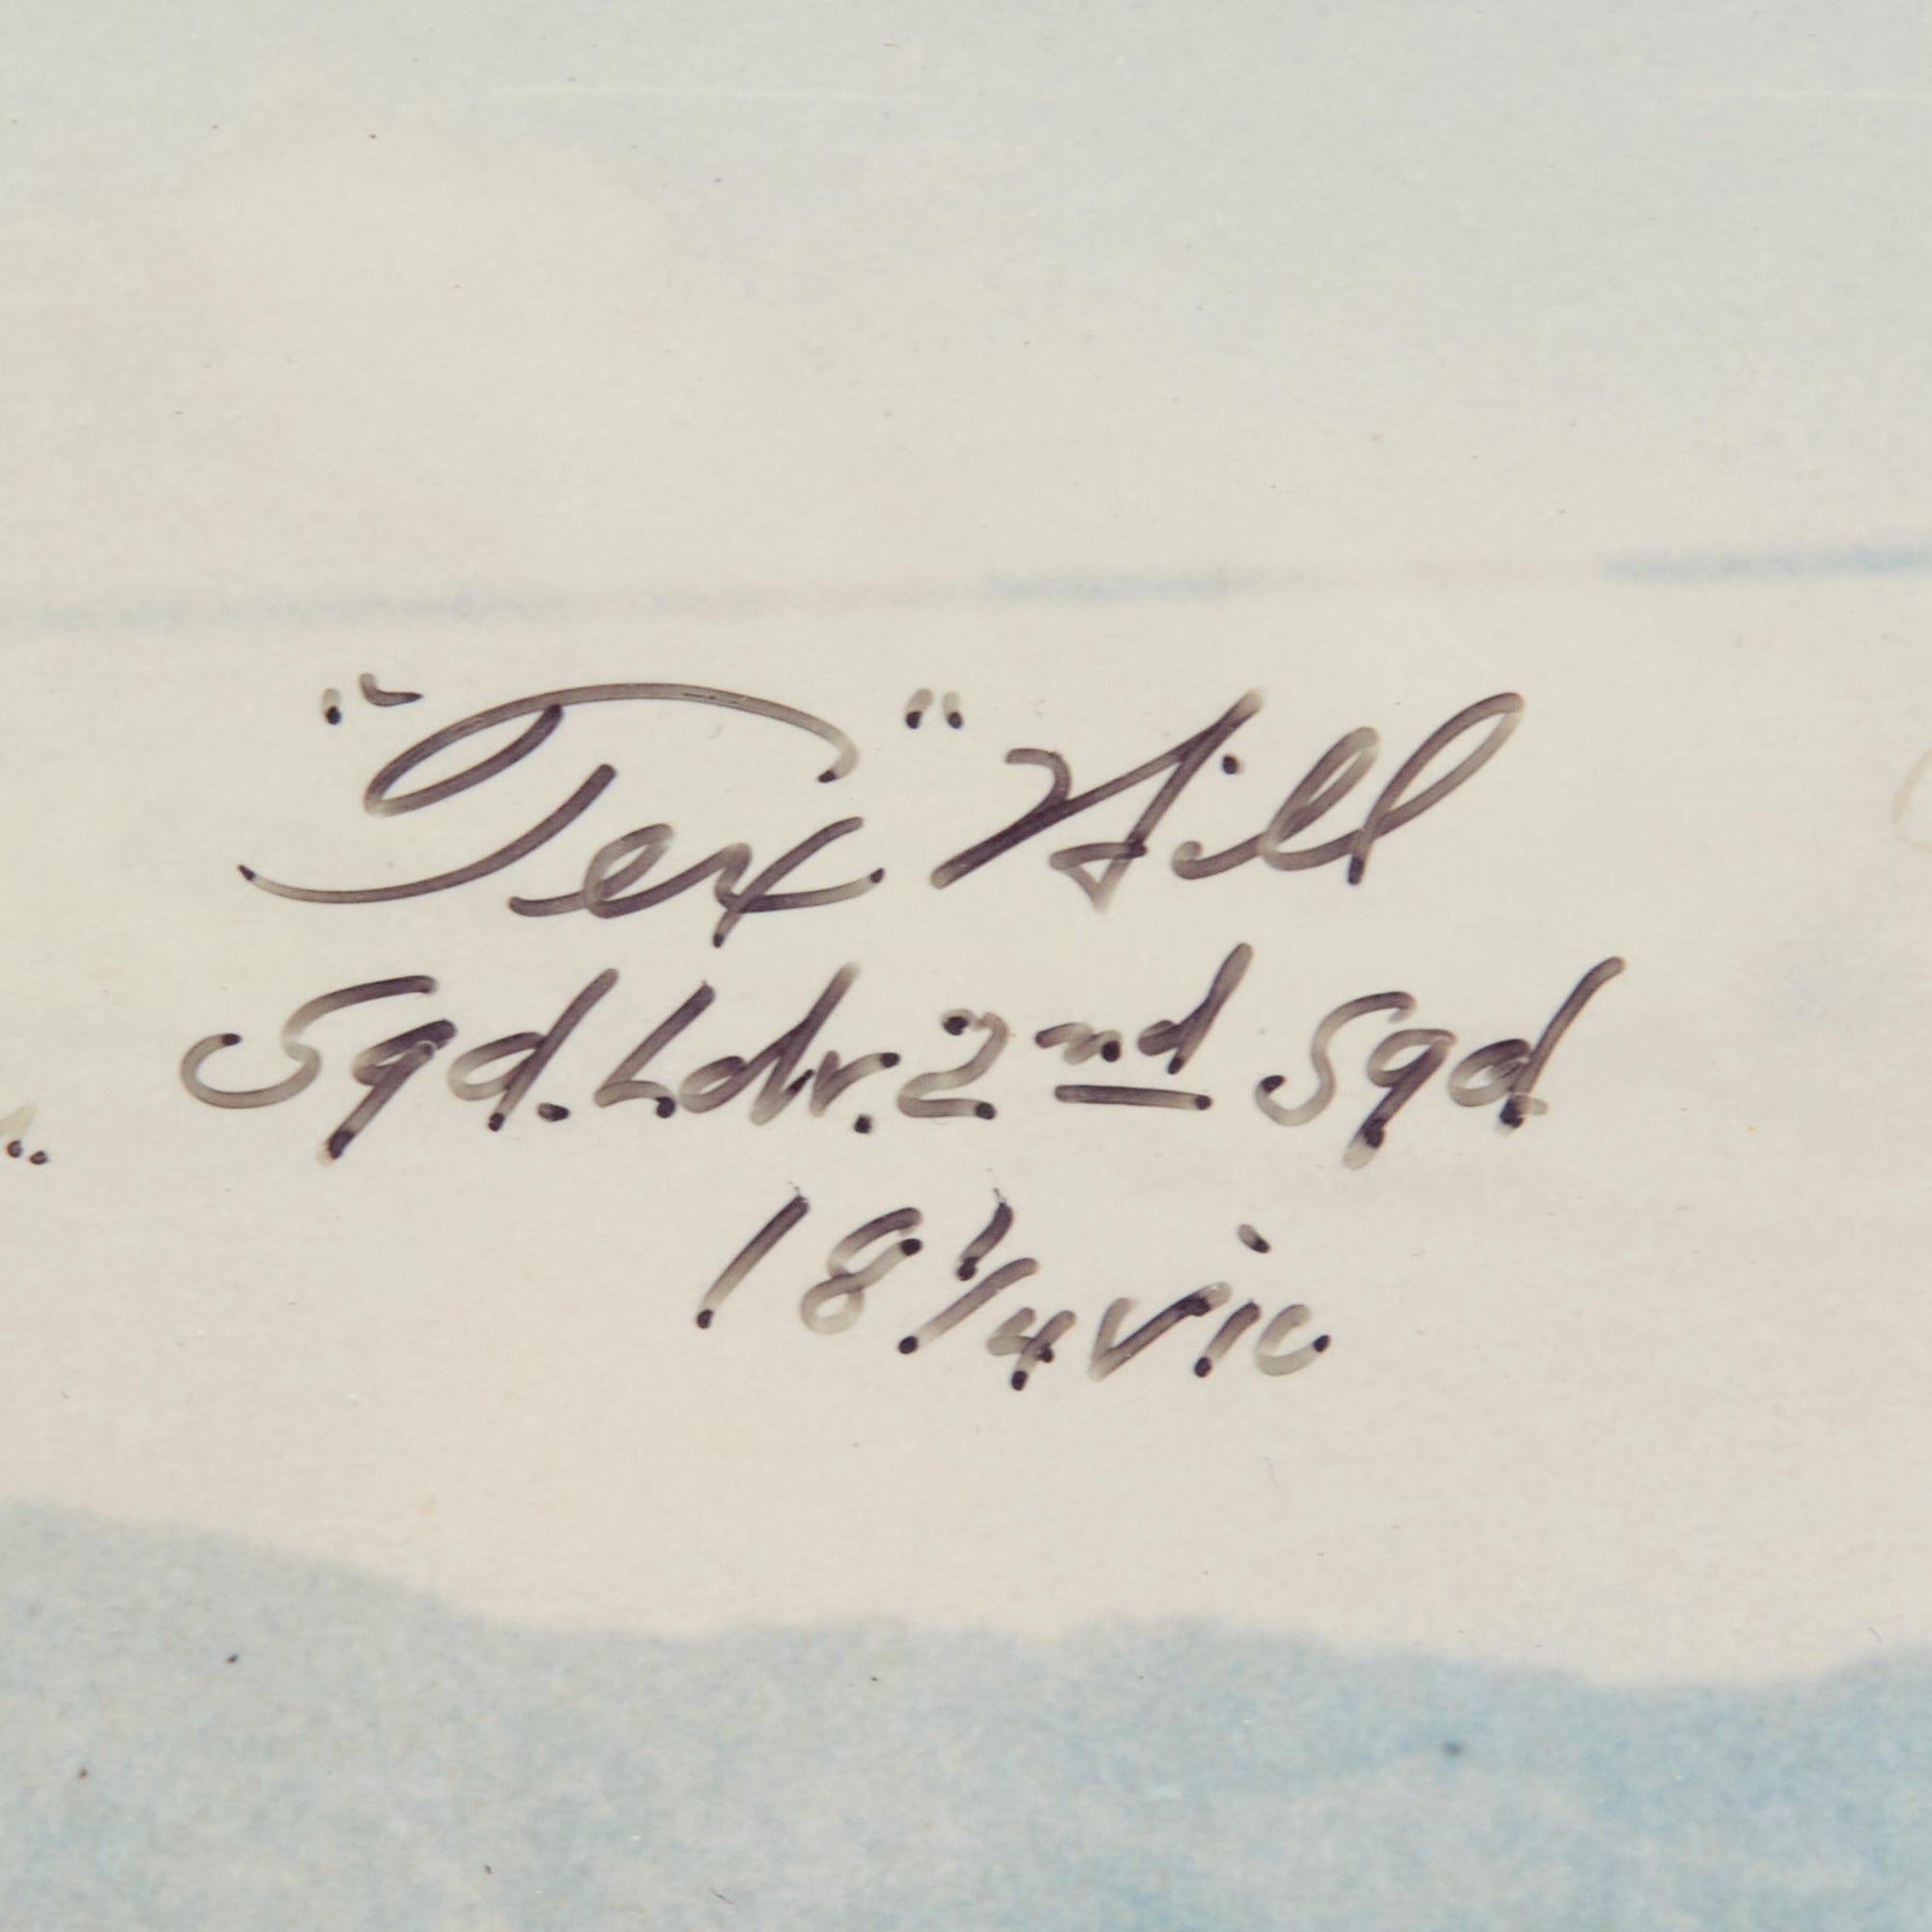 "Tex" Hill
Sqd. Ldr. 2nd Sqd
18 1/4 vic